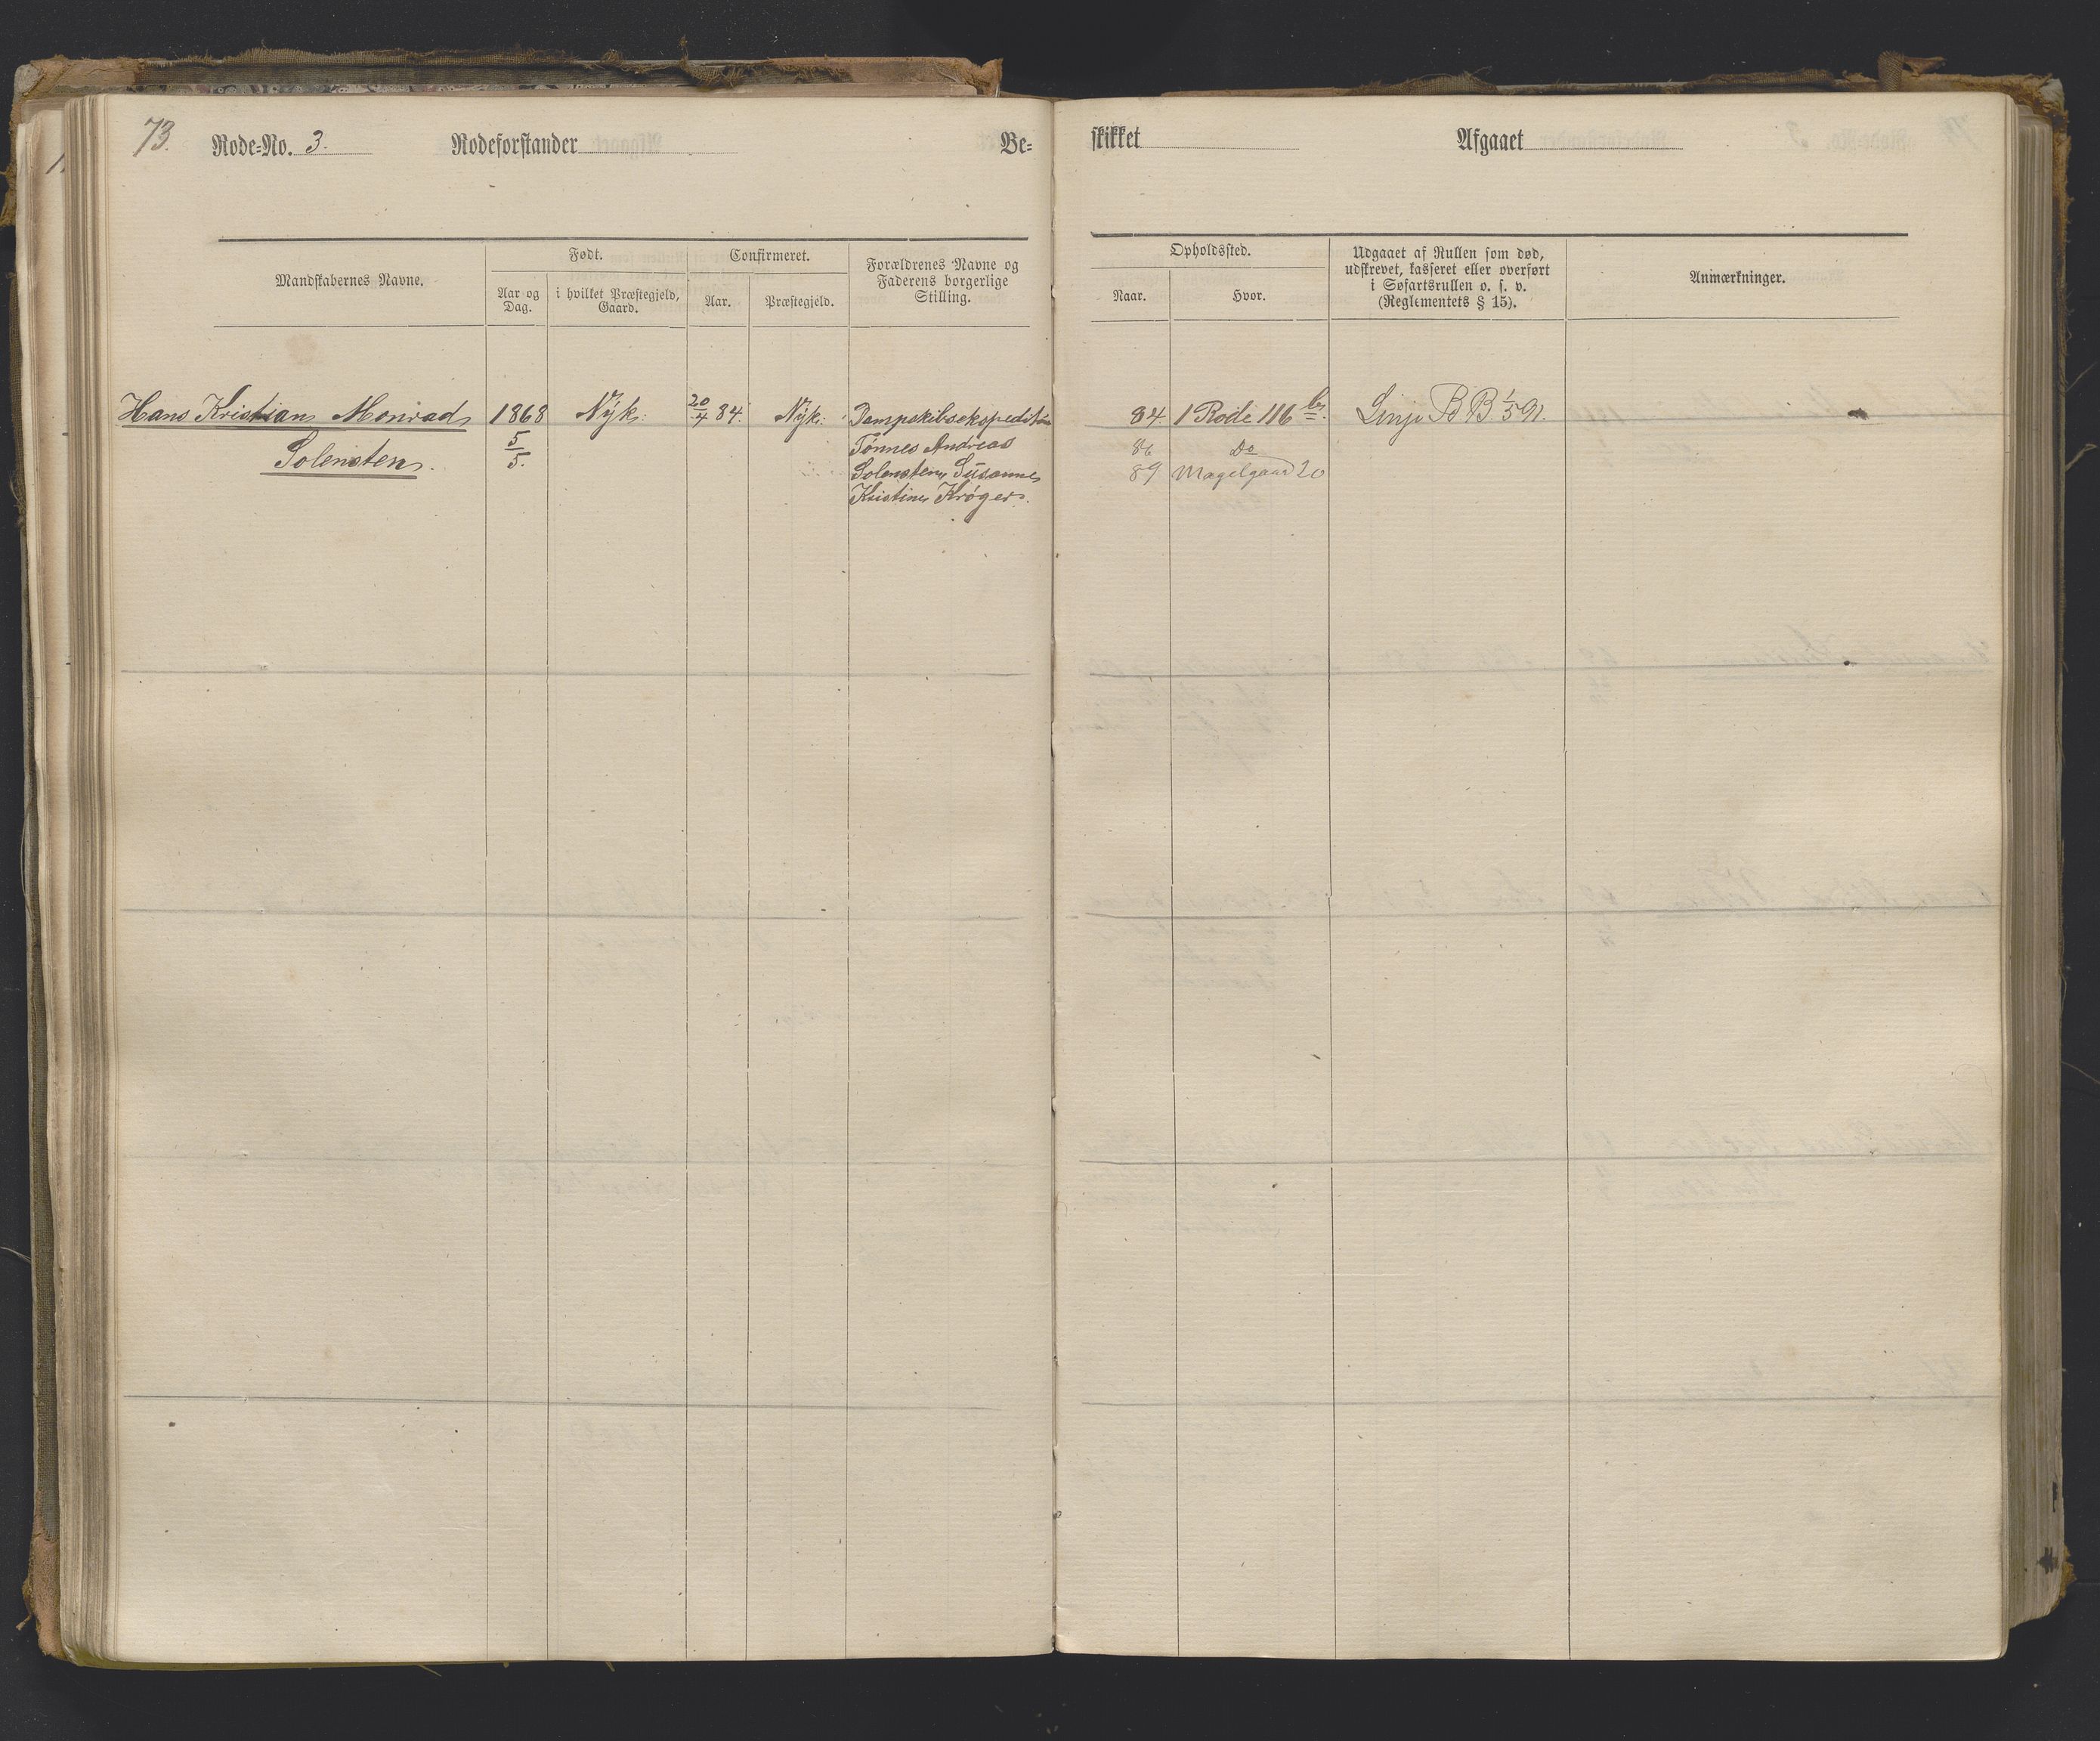 73.
Rode-No. 3. Rodeforstander Be-
skikket Afgaaet
Mandskabernes Navne.
Født.
Aar og
Dag.
i hvilket Præstegjeld,
Gaard.
Confirmeret.
Aar.
Præstegjeld.
Forældrenes Navne og
Faderens borgerlige
Stilling.
Opholdssted.
Naar.
Hvor.
Udgaaet af Rullen som død,
udskrevet, kasseret eller overført
i Søfartsrullen o. s. v.
(Reglementets § 15).
Anmærkninger.
Hans Kristian Monrad
Solensten.
1868
5/5.
Nyk:
20/4 84.
Nyk:
Dampskibsekspeditør
Tønnes Andreas
Solensten, Susanne
Kristine Krøger.
84. 1 Rode 116
86 Do
89 Magelgaard 20
Linje B B. 1/5 91.